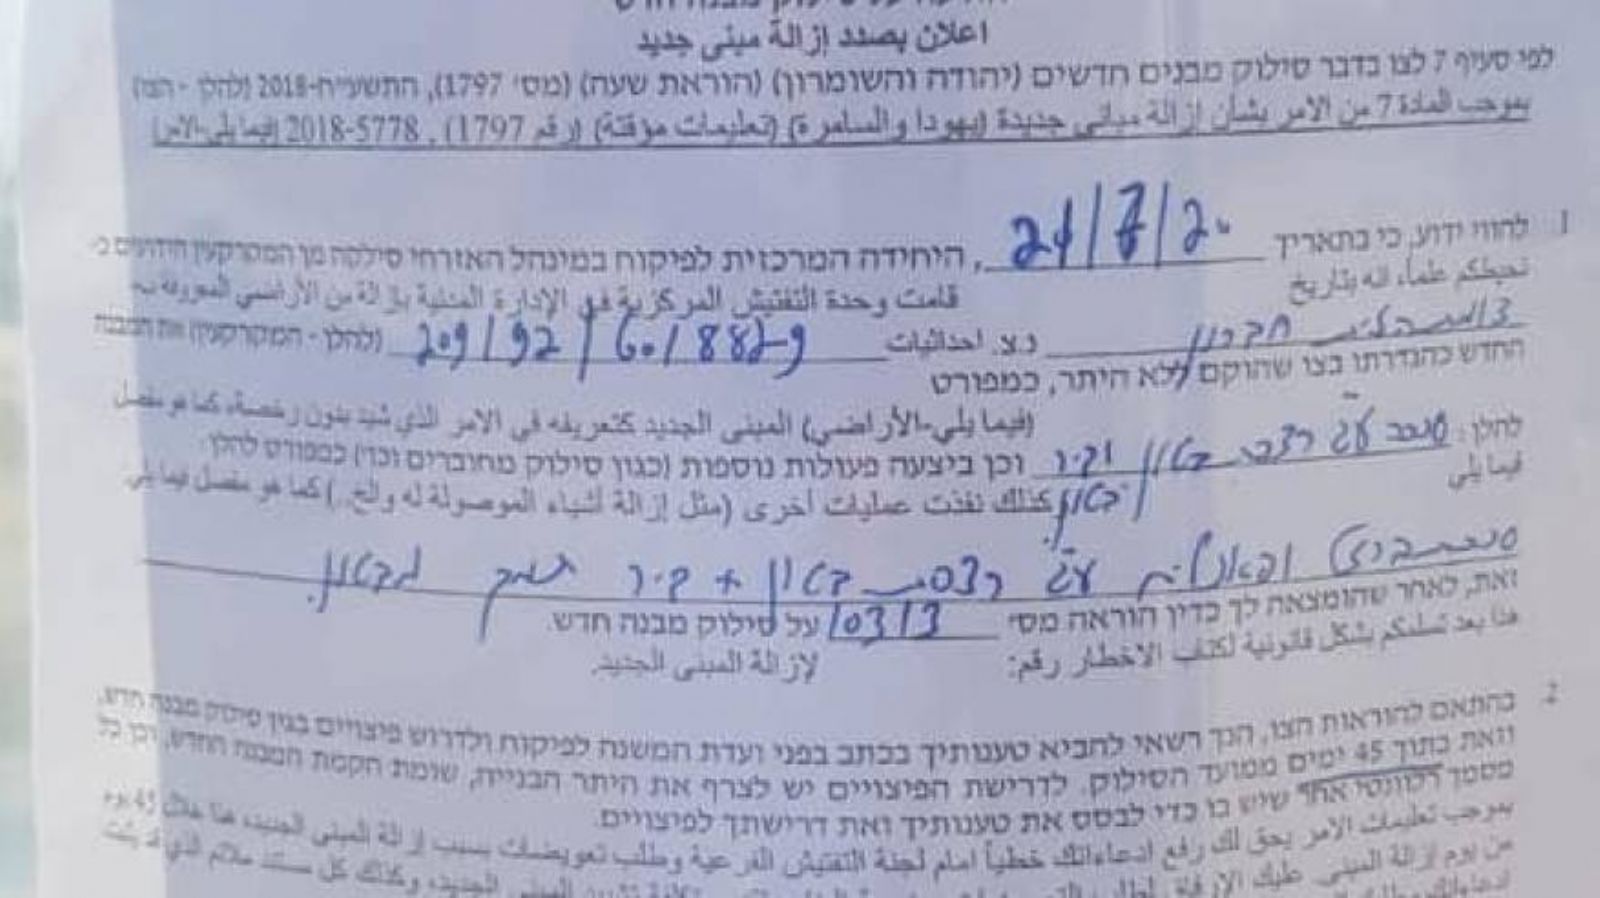 اعلان بصدد إزالة مبنى جديد
לפי סעיף 7 לצו בדבר סילוק מבנים חדשים (יהודה והשומרון) (הוראת שעה) (מס' 1797), התשע"ח-2018 (להלן - הצו)
بموجب المادة 7 من الامر بشأن إزالة مباني جديدة (يهودا والسامرة) (تعليمات مؤقتة) (رقم 1797), 2018-5778 (فيما يلي-الامر)
1. להווי ידוע, כי בתאריך 21/7/20, היחידה המרכזית לפיקוח במינהל האזרחי סילקה מן המקרקעין הידועים כ-
نحيطكم علماً، انه بتاريخ قامت وحدة التفتيش المركزية في الإدارة المدنية بإزالة من الأراضي المعروفة بـ
חברון נ.צ. احداثيات 209/92/60/882-9 (להלן - המקרקעין) את המבנה
החדש כהגדרתו בצו שהוקם ללא היתר, כמפורט
(فيما يلي-الأراضي) المبنى الجديد كتعريفه في الامر الذي شيد بدون رخصة، كما هو مفصل
להלן: בטון וקיר וכן ביצעה פעולות נוספות (כגון סילוק מחוברים וכו') כמפורט להלן
فيما يلي בטון كذلك نفذت عمليات أخرى (مثل إزالة أشياء الموصولة له والخ..) كما هو مفصل فيما يلي
על רצפת בטון + קיר תומך מבטון.
זאת, לאחר שהומצאה לך כדין הוראה מס' 10313 על סילוק מבנה חדש.
هذا بعد تسليمكم بشكل قانونية لكتاب الاخطار رقم: لإزالة المبنى الجديد.
2. בהתאם להוראות הצו, הנך רשאי להביא טענותיך בכתב בפני ועדת המשנה לפיקוח ולדרוש פיצויים בגין סילוק מבנה חדש,
וזאת בתוך 45 ימים ממועד הסילוק. לדרישת הפיצויים יש לצרף את היתר הבנייה, שומת הקמת המבנה החדש, וכן כל
מסמך רלוונטי אחר שיש בו כדי לבסס את טענותיך ואת דרישתך לפיצויים.
بموجب تعليمات الامر يحق لك رفع ادعاءاتك خطياً امام لجنة التفتيش الفرعية وطلب تعويضات بسبب إزالة المبنى الجديد، هذا خلال 45 يوم
من يوم إزالة المبنى. عليك الارفاق لطلب المبنى الجديد، وكذلك كل مستند ملائم الذي قد يثبت